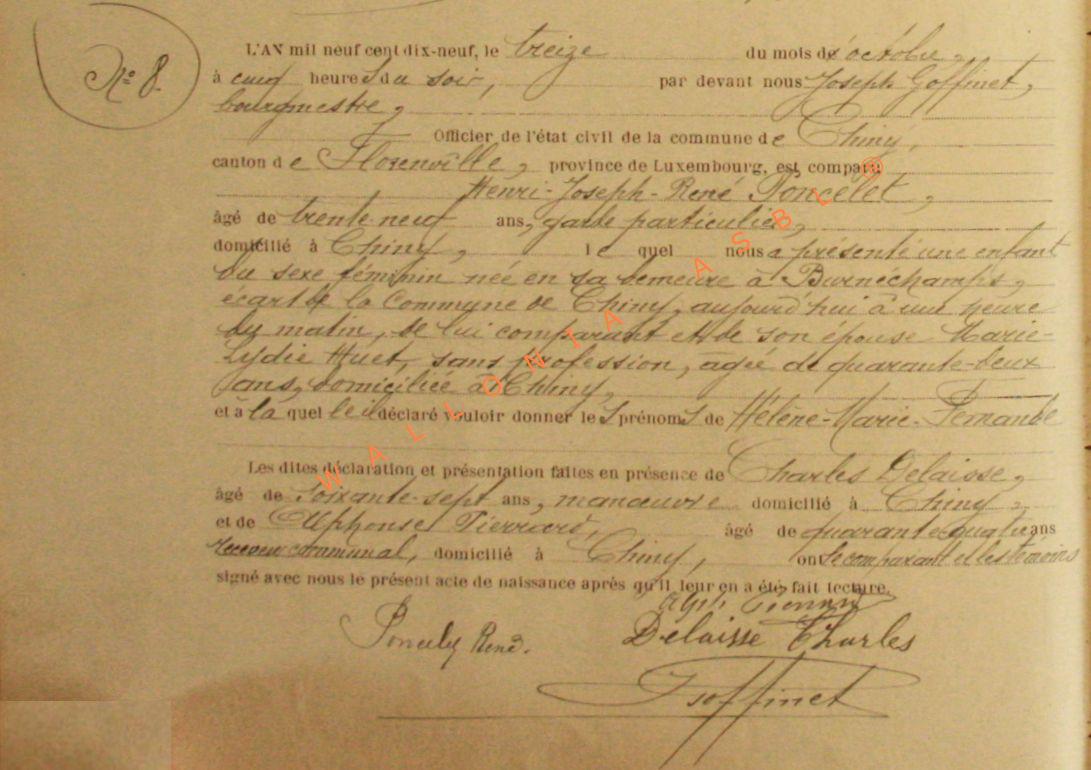 N° 8.
L'AN mil neuf cent dix-neuf, le treize du mois d'octobre,
à cinq heures du soir, par devant nous Joseph Goffinet,
bourgmestre,
Officier de l'état civil de la commune de Chiny,
canton de Florenville, province de Luxembourg, est comparu
Henri-Joseph-René Poncelet,
âgé de trente-neuf ans, garde particulier,
domicilié à Chiny, lequel nous a présenté une enfant
du sexe féminin née en sa demeure à Burnéchamps,
écart de la Commune de Chiny, aujourd'hui à une heure
du matin, de lui comparant et de son épouse Marie-
Lydie Huet, sans profession, agée de quarante-deux
ans, domiciliée à Chiny,
et à la quelle il déclaré vouloir donner les prénoms de Hélène-Marie-Fernande
Les dites déclaration et présentation faites en présence de Charles Delaisse,
âgé de soixante-sept ans, manœuvre domicilié à Chiny,
et de Alphonse Pierrard, âgé de quarante quatre ans
receveur communal, domicilié à Chiny, ont le comparant et les témoins
signé avec nous le présent acte de naissance après qu'il leur en a été fait lecture.
Alph. Pierrard
René. Delaisse Charles
J Goffinet
WALLONIA ASBL